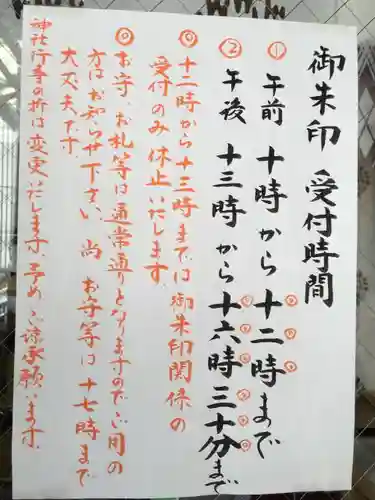 御朱印 受付時間
① 午前 十時から十二時まで
② 午後 十三時から十六時三十分まで
◎ 十二時から十三時までは御朱印関係の
受付のみ休止いたします。
◎ お守、お札等は通常通りとなりますのでご用の
方はお知らせ下さい、尚 お守等は十七時まで
大丈夫です。
神社行事の折は変更いたします。予めご諒承願います。